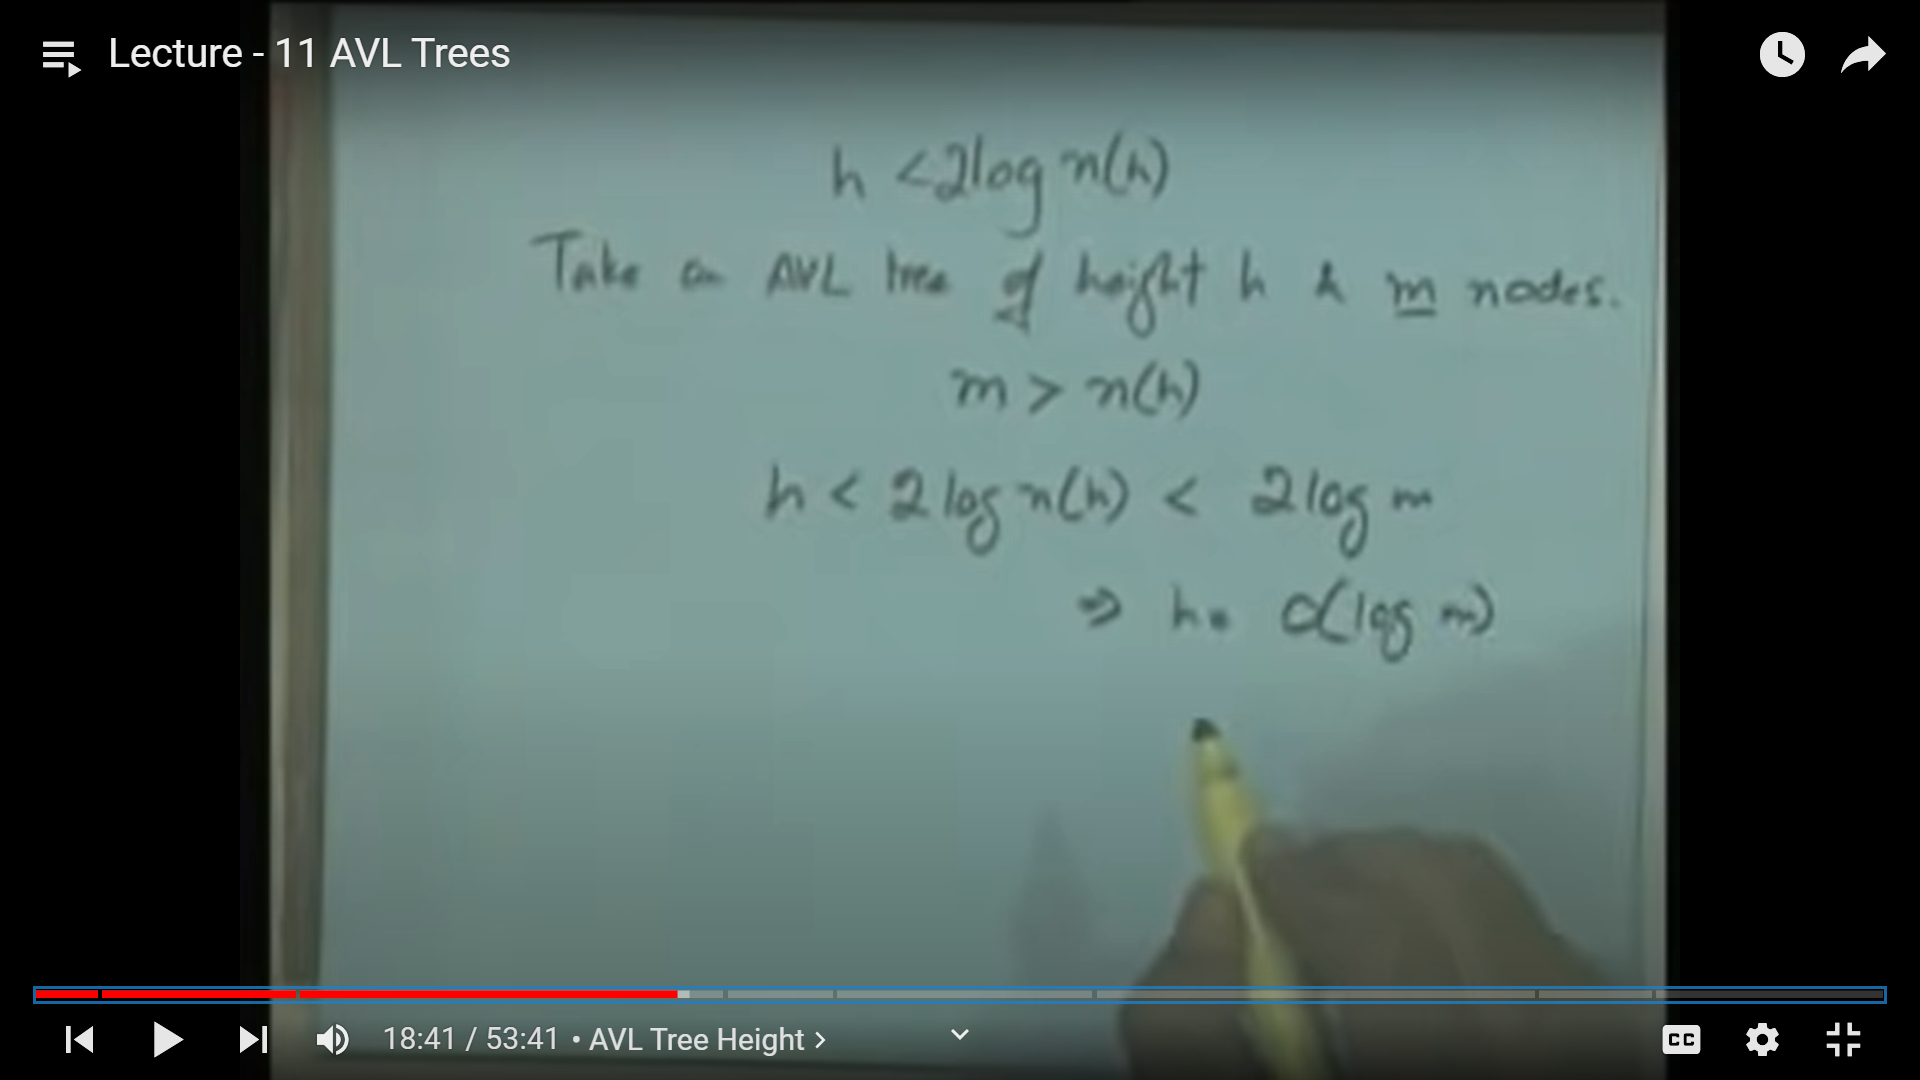 Lecture - 11 AVL Trees
h < 2log n(h)
Take an AVL tree of height h & m nodes.
m > n(h)
h < 2 log n(h) < 2 log m
⇒ h = O(log m)
18:41 / 53:41 • AVL Tree Height >
CC